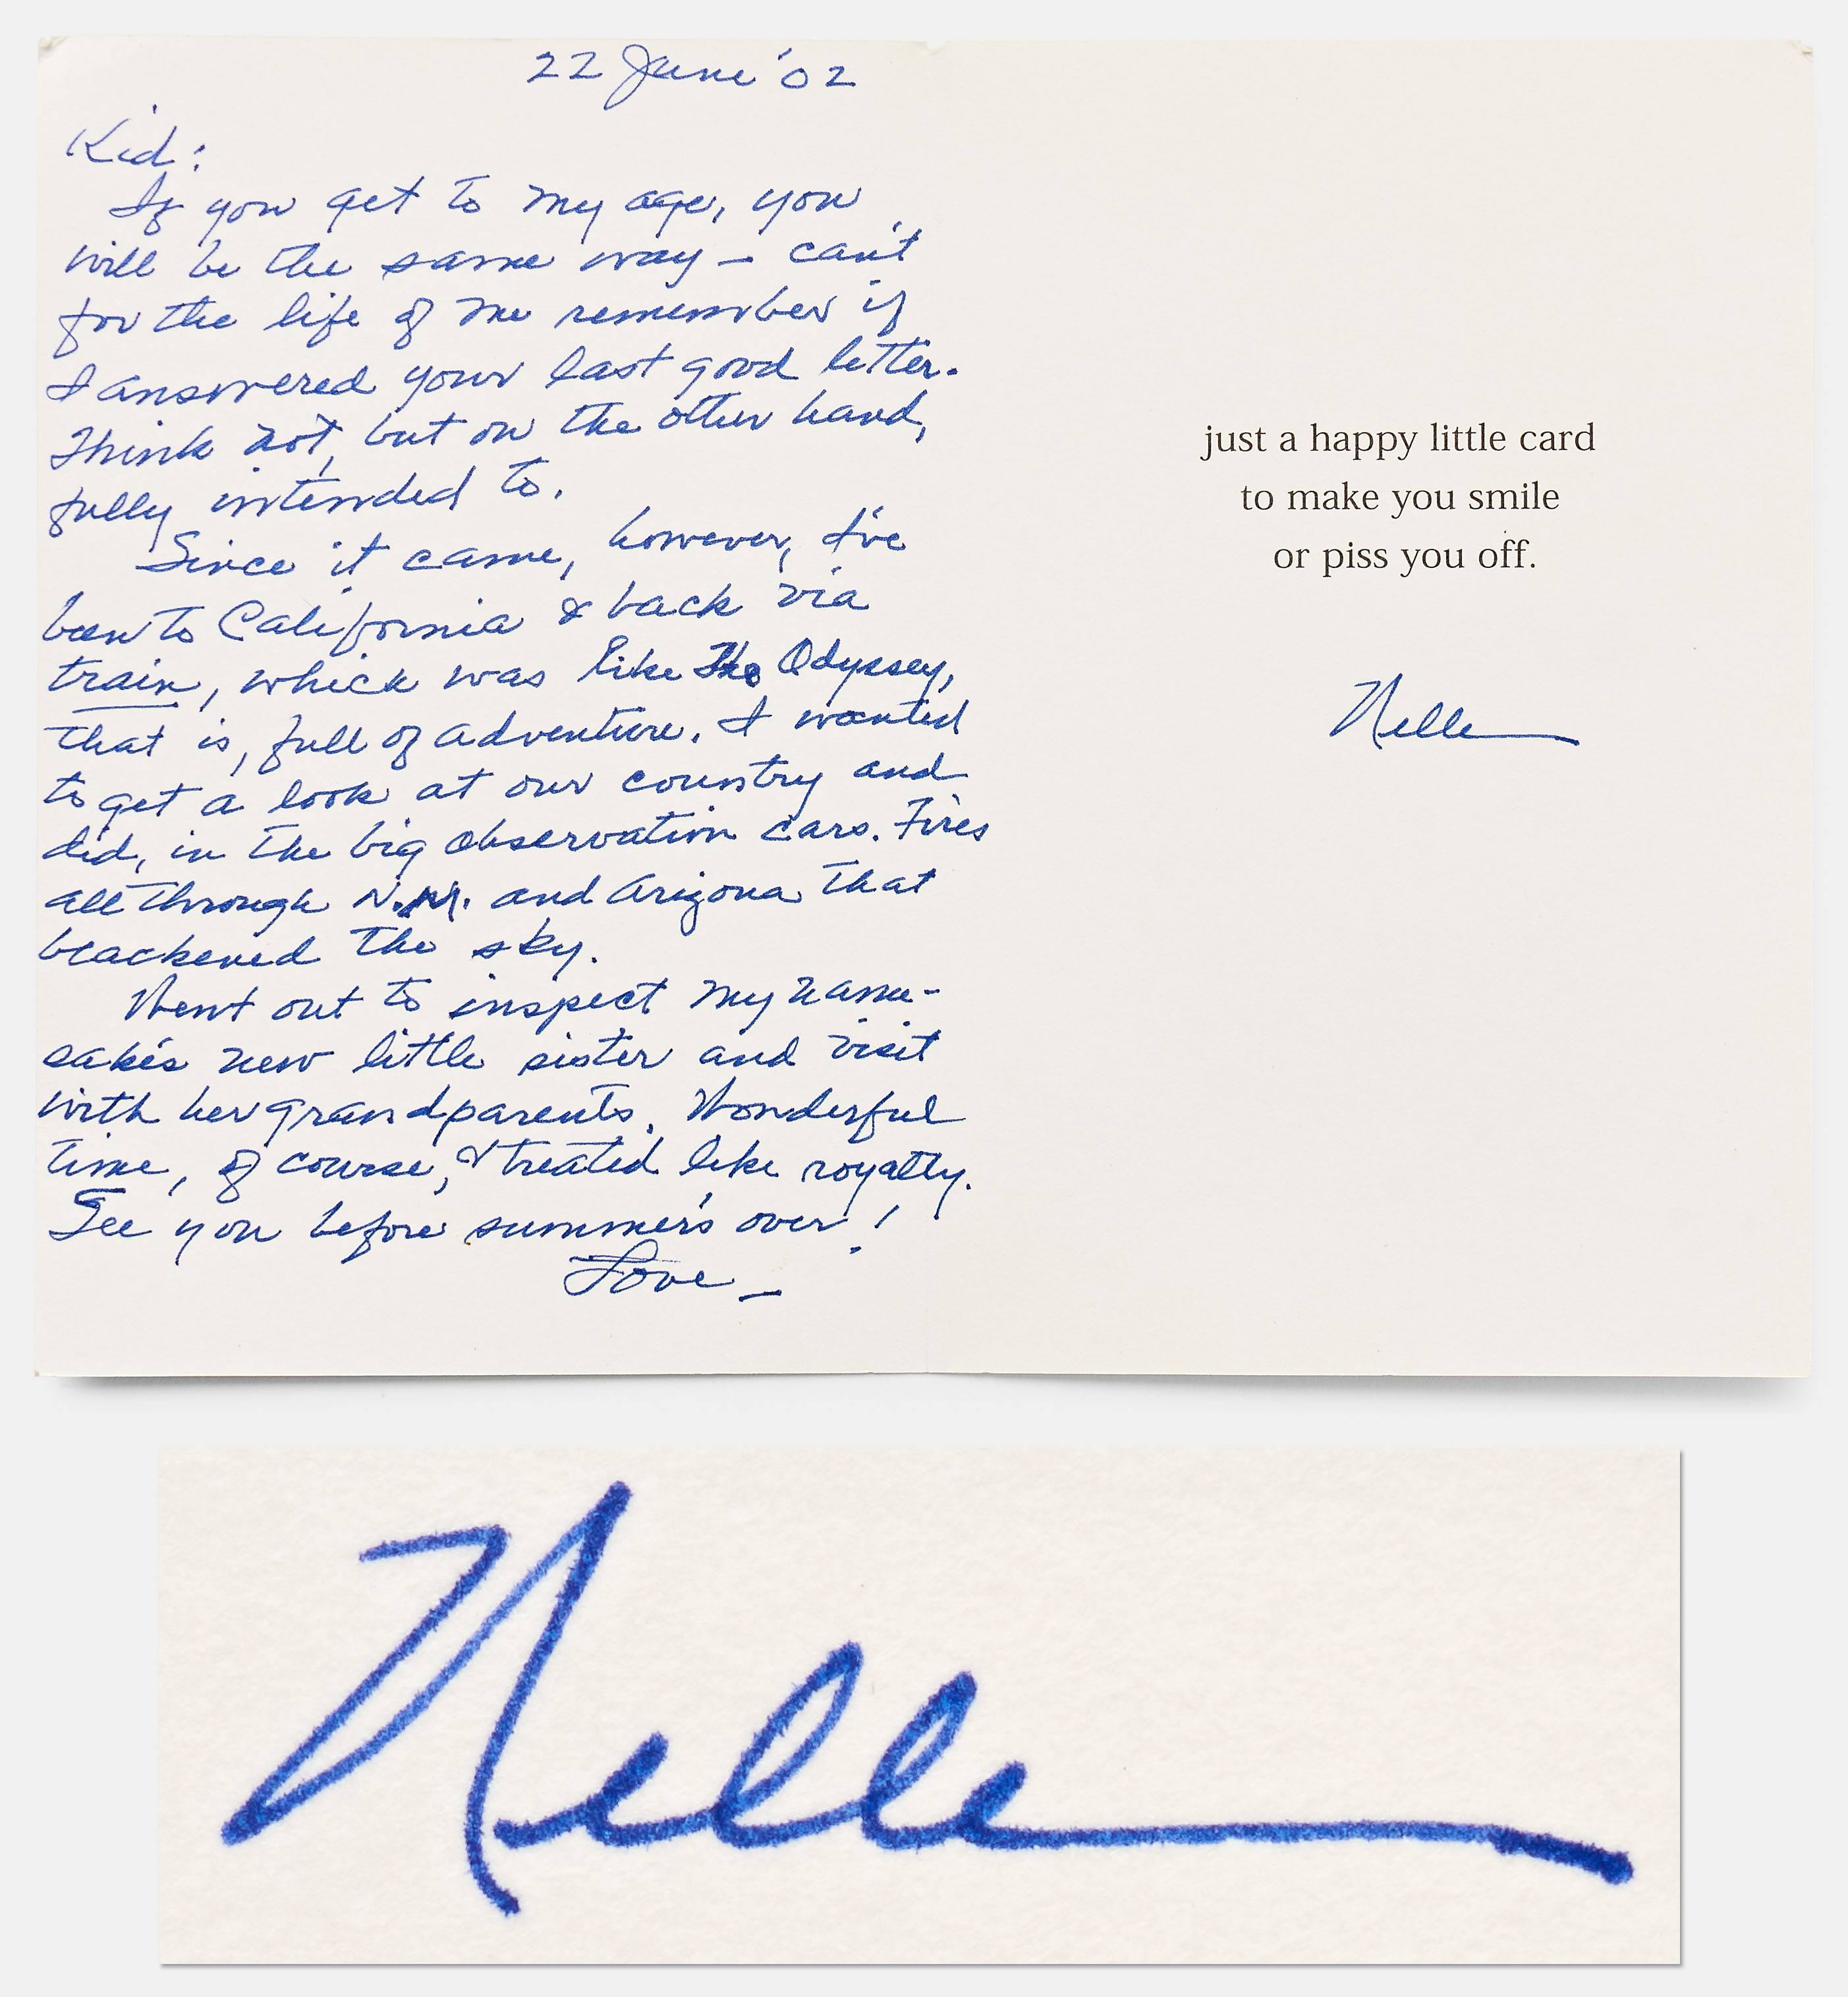 22 June '02
Kid:
If you get to my age, you
will be the same way — can't
for the life of me remember if
I answered your last good letter.
Think not, but on the other hand,
fully intended to.
Since it came, however, I've
been to California & back via
train, which was like The Odyssey,
that is, full of adventure. I wanted
to get a look at our country and
did, in the big observation cars. Fires
all through N.M. and Arizona that
blackened the sky.
Went out to inspect my name-
sake's new little sister and visit
with her grandparents. Wonderful
time, of course, & treated like royalty.
See you before summer's over!
Love —
just a happy little card
to make you smile
or piss you off.
Nelle
Nelle